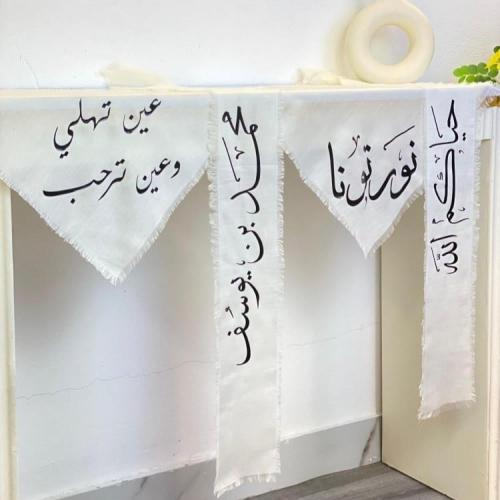 عين تهلي
وعين ترحب
محمد بن يوسف
نورتونا
حياكم الله